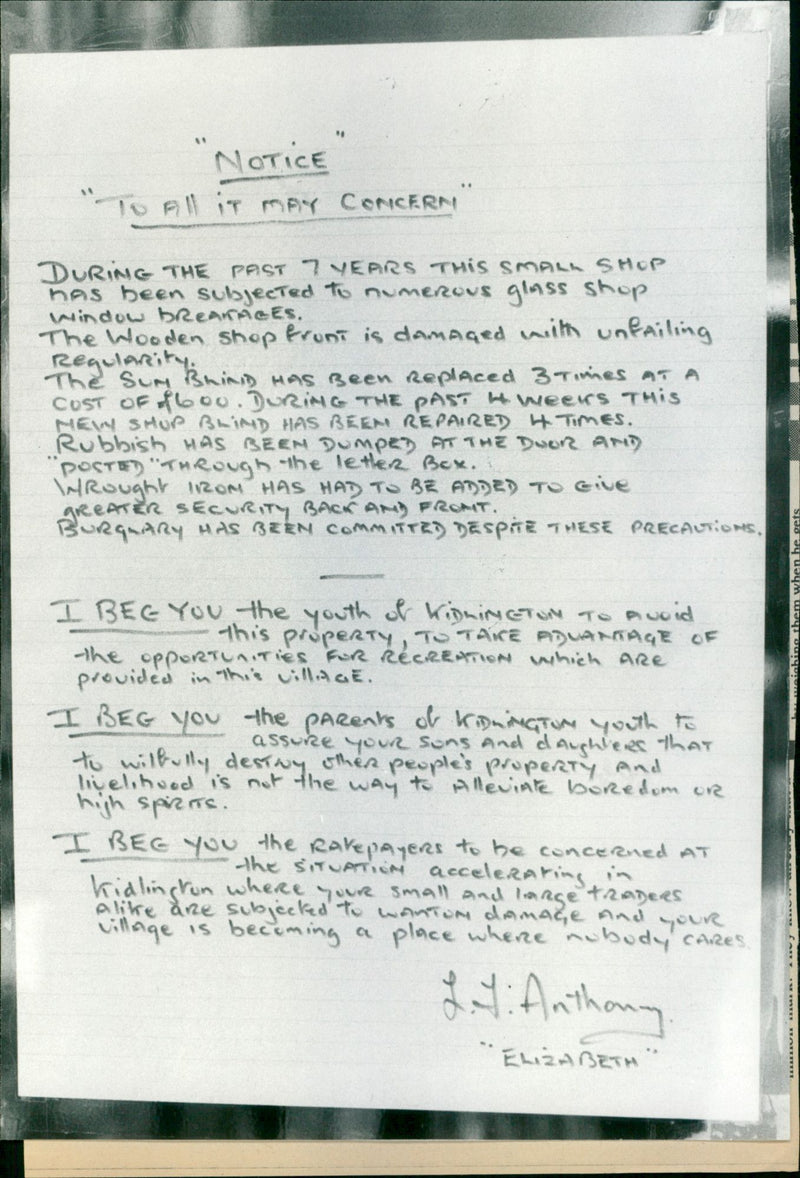 "NOTICE"
"TO All iT MAY CONCERN"
DURING THE PAST 7 YEARS THIS SMALL SHOP
HAS been subjected to numerous glass shop
window bREAKAGES.
The Wooden shop front is damaged with unfailing
REgulARity.
The SUN BLIND HAS Been Replaced 3 Times AT A
COST OF £600. DURING THE PAST 4 WEEKS THIS
NEW SHOP BLIND HAS BEEN REPAIRED 4 TIMES.
Rubbish HAS BEEN DUMPED AT THE DOOR AND
"POSTED" THROUGH the letteR Box.
WROUGHT IRON HAS HAD TO BE ADDED TO GIVE
GREATER SECURITY BACK AND FRONT.
BURGLARY HAS BEEN COMMITTED DESPITE THESE PRECAUTIONS.
I BEG YOU the youth of KIDLINGTON TO AVOID
this property, TO TAKE ADVANTAGE OF
the OPPORTUNITIES FOR RECREATION which ARE
provided in this villAGE.
I BEG YOU the PARENTS of KIDLINGTON youth to
ASSURE YOUR SONS AND dAughteRS THAT
to wilfully destroy other people's property AND
livelihood is not the WAY to Alleviate boredom OR
high SPIRITS.
I BEG YOU the RATEPAYERS to be concerned AT
the SITUATION accelerating in
Kidlington where your small and large TRADERS
Alike ARE subjected to WANTON damage AND your
village is becoming a place where nobody CARES.
L.J. Anthony.
"ELIZABETH"
by weighing them when he gets